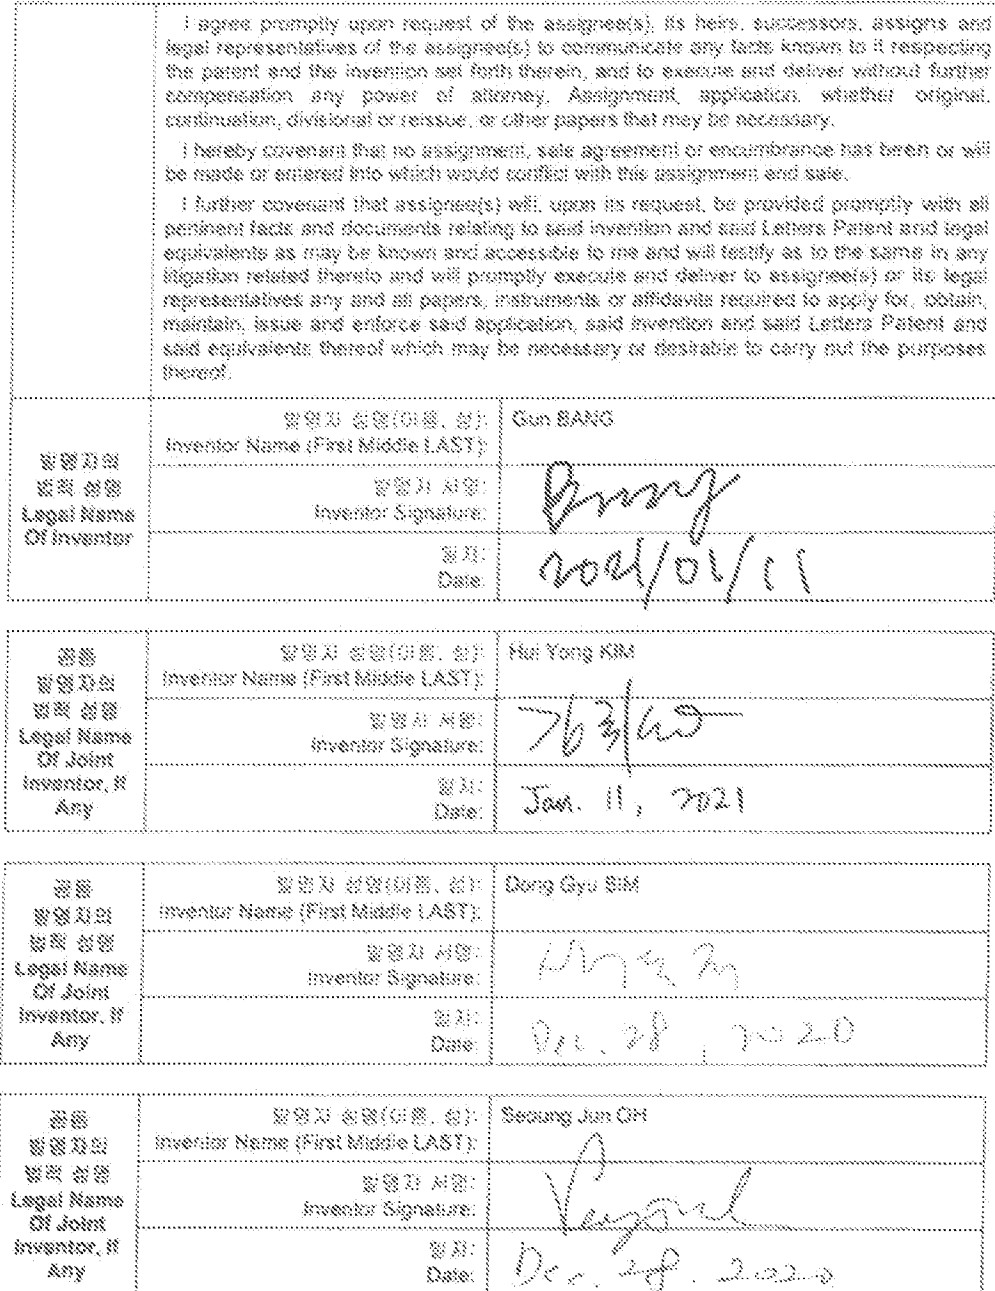 I agree promptly upon request of the assignee(s), its heirs, successors, assigns and
legal representatives of the assignee(s) to communicate any facts known to it respecting
the patent and the invention set forth therein, and to execute and deliver without further
compensation any power of attorney, Assignment, application, whether original,
continuation, divisional or reissue, or other papers that may be necessary.
I hereby covenant that no assignment, sale agreement or encumbrance has been or will
be made or entered into which would conflict with this assignment and sale.
I further covenant that assignee(s) will, upon its request, be provided promptly with all
pertinent facts and documents relating to said invention and said Letters Patent and legal
equivalents as may be known and accessible to me and will testify as to the same in any
litigation related thereto and will promptly execute and deliver to assignee(s) or its legal
representatives any and all papers, instruments or affidavits required to apply for, obtain,
maintain, issue and enforce said application, said invention and said Letters Patent and
said equivalents thereof which may be necessary or desirable to carry out the purposes
thereof.
발명자의
법적 성명
Legal Name
Of Inventor
발명자 성명(이름, 성):
Inventor Name (First Middle LAST):
Gun BANG
발명자 서명:
Inventor Signature:
Bang
일자:
Date:
2021/01/11
공동
발명자의
법적 성명
Legal Name
Of Joint
Inventor, If
Any
발명자 성명(이름, 성):
Inventor Name (First Middle LAST):
Hui Yong KIM
발명자 서명:
Inventor Signature:
일자:
Date:
Jan. 11, 2021
공동
발명자의
법적 성명
Legal Name
Of Joint
Inventor, If
Any
발명자 성명(이름, 성):
Inventor Name (First Middle LAST):
Dong Gyu SIM
발명자 서명:
Inventor Signature:
일자:
Date:
Dec. 28, 2020
공동
발명자의
법적 성명
Legal Name
Of Joint
Inventor, If
Any
발명자 성명(이름, 성):
Inventor Name (First Middle LAST):
Seoung Jun OH
발명자 서명:
Inventor Signature:
일자:
Date:
Dec. 28. 2020